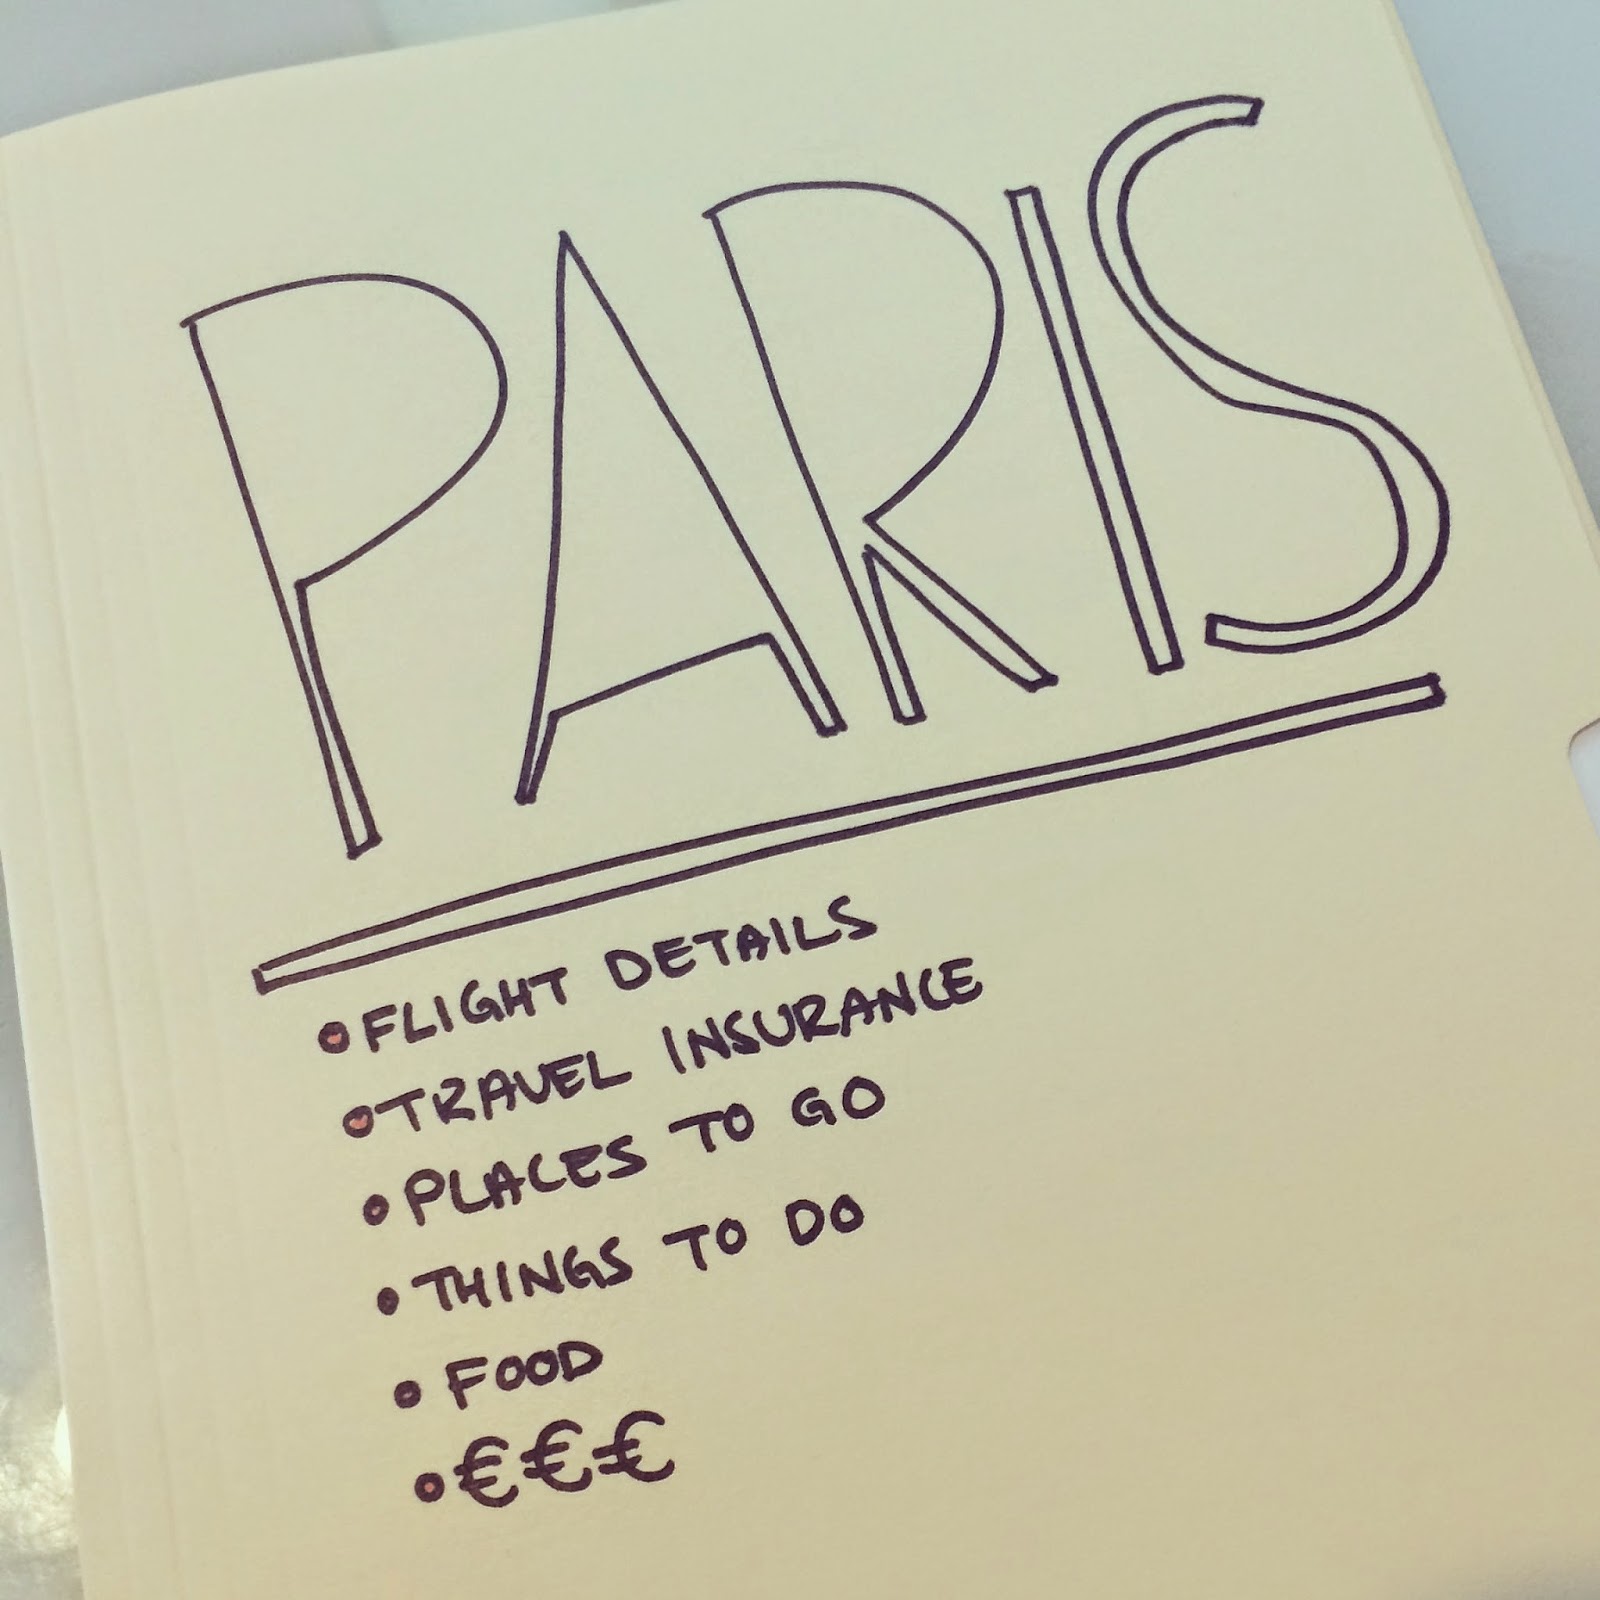 PARIS
•FLIGHT DETAILS
•TRAVEL INSURANCE
•PLACES TO GO
•THINGS TO DO
•FOOD
•€€€